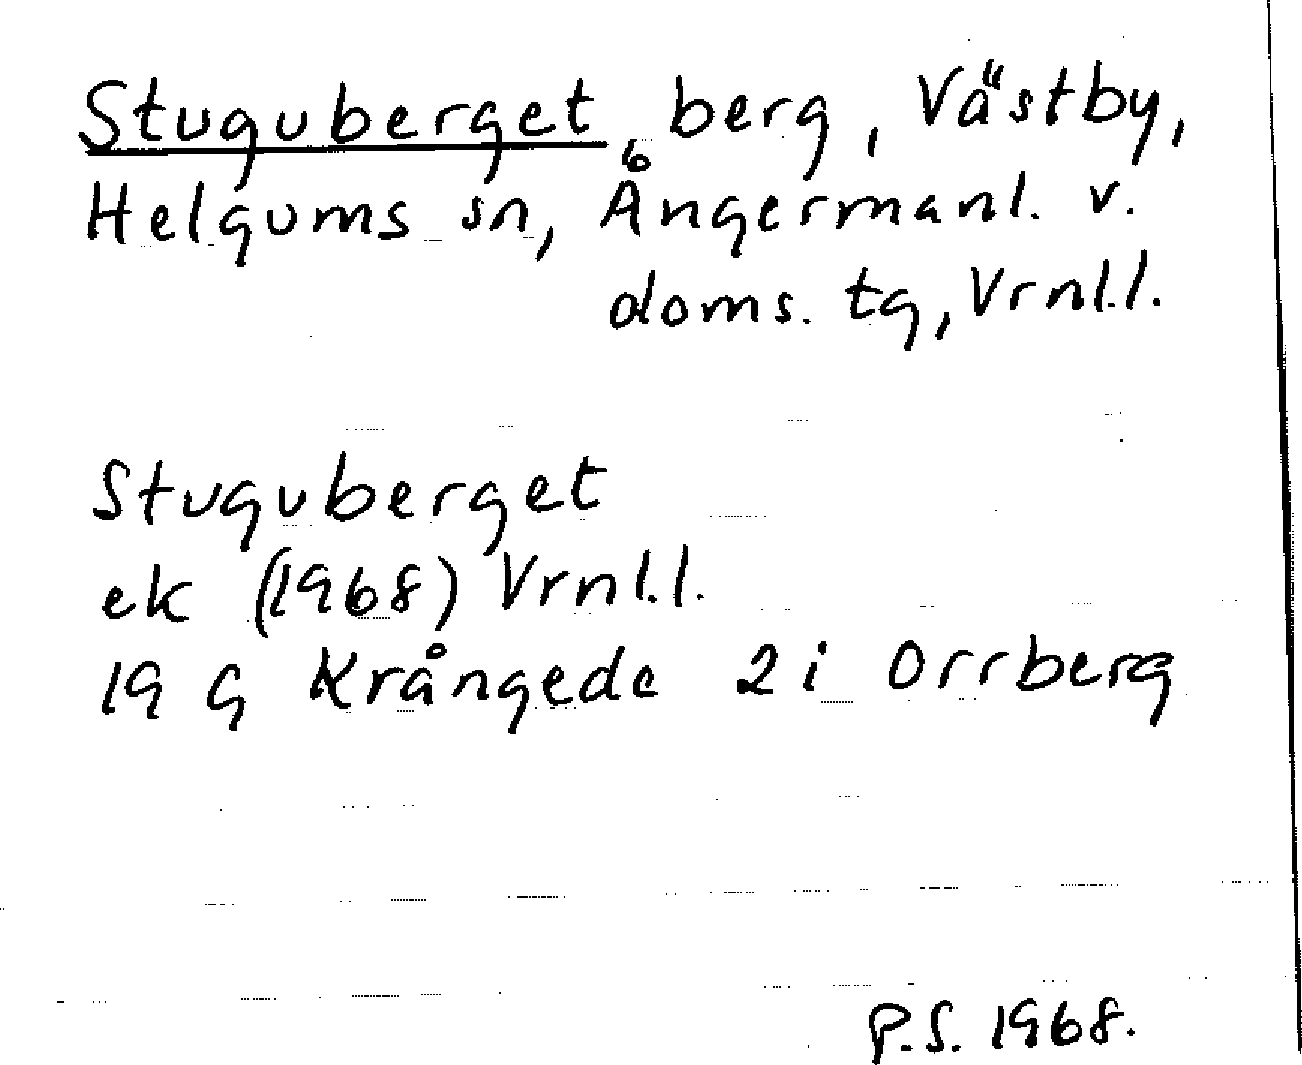 Stuguberget berg, Västby,
Helgums sn, Ångermanl. v.
doms. tg, Vrnl.l.
Stuguberget
ek (1968) Vrnl.l.
19 G Krångede 2 i Orrberg
P.S. 1968.